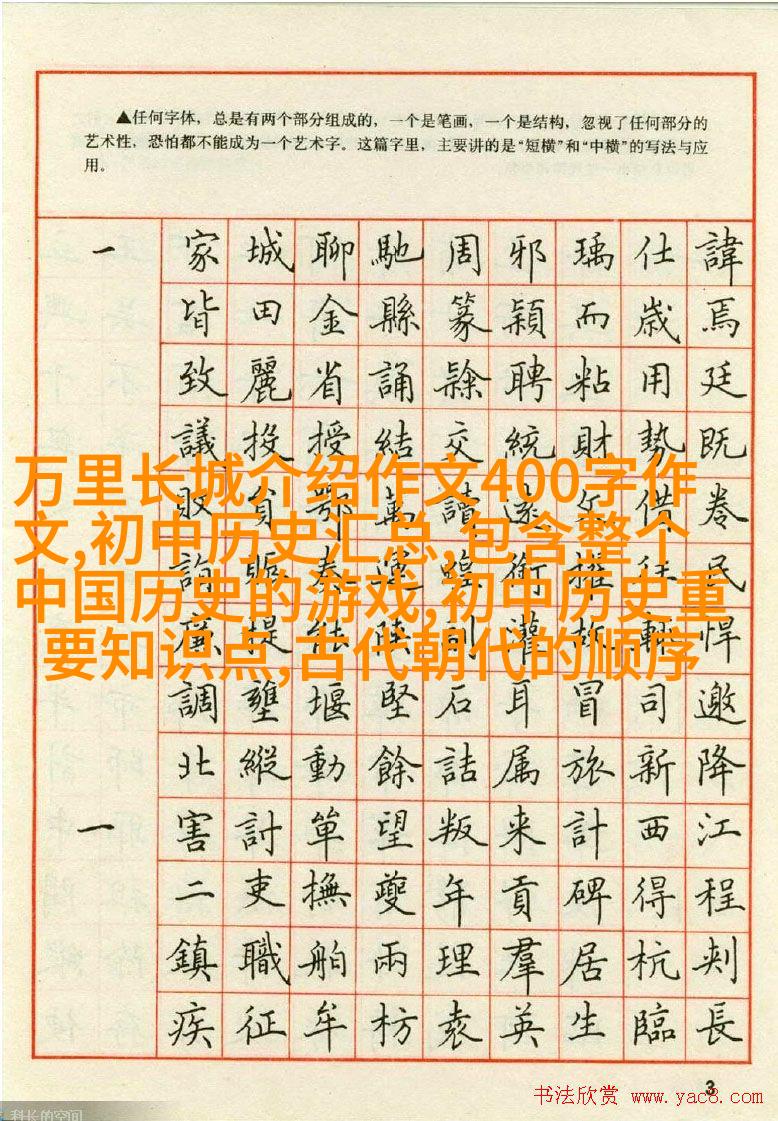 ▲任何字体，总是有两个部分组成的，一个是笔画，一个是结构，忽视了任何部分的
艺术性，恐怕都不能成为一个艺术字。这篇字里，主要讲的是“短横”和“中横”的写法与应
用。
一 家 城 聊 馳 周 邪 瑀 仕 諱
皆 田 金 縣 篆 穎 而 歲 焉
致 麗 省 誦 隸 聘 粘 用 廷
議 投 授 結 交 統 財 勢 既
万里长城介绍作文400字作
文,初中历史汇总,包含整个
中国历史的游戏,初中历史重
要知识点,古代朝代的顺序
調 壅 堰 堅 石 耳 冒 司 邀
北 縱 動 餘 詰 属 旅 新 降
一 害 討 単 望 叛 来 計 西 江
二 吏 撫 夔 年 貢 碑 得 程
鎮 職 舶 兩 理 羣 居 杭 刺
疾 征 牟 枋 袁 英 生 臨 長
3
书法欣赏 www.yac8.com
科长的空间